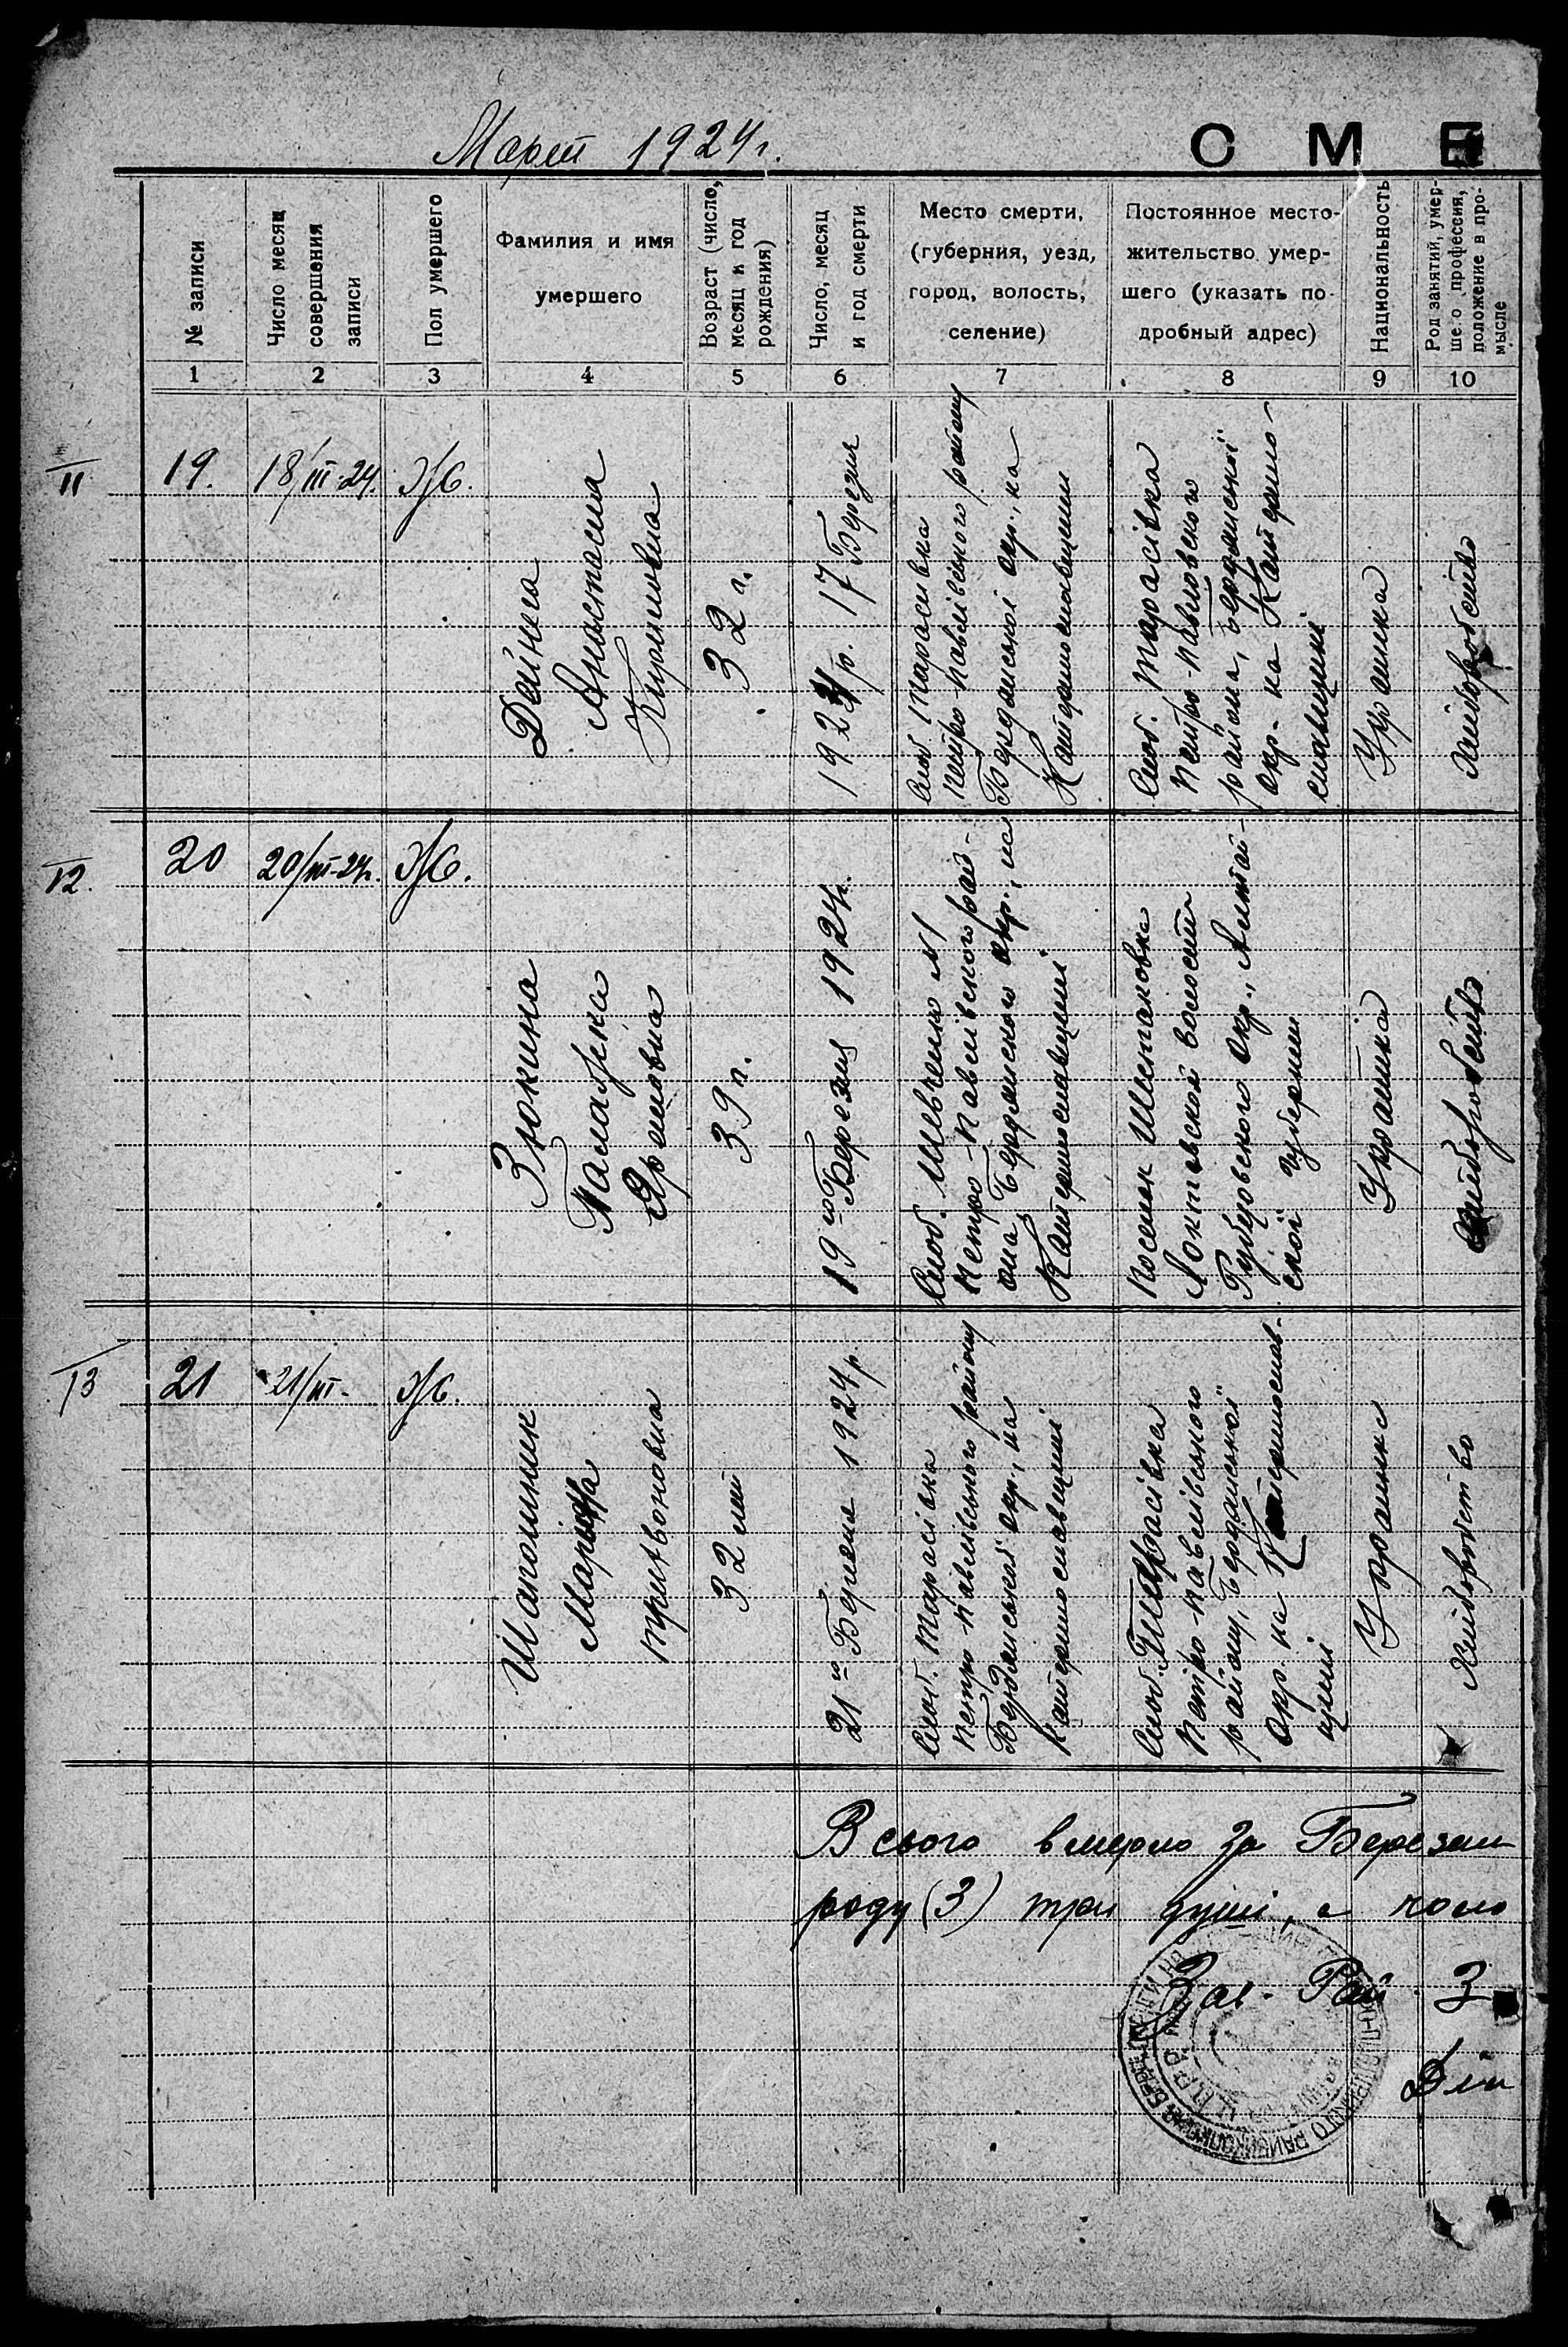 Март 1924г.
СМЕ
№ записи
Число месяц
совершения
записи
Пол умершего
Фамилия и имя
умершего
Возраст (число,
месяц и год
рождения)
Число, месяц
и год смерти
Место смерти,
(губерния, уезд,
город, волость,
селение)
Постоянное место-
жительство умер-
шего (указать по-
дробный адрес)
Национальность
Род занятий, умер-
шего профессия,
положение в про-
мысле
1
2
3
4
5
6
7
8
9
10
11
19.
18/III-24.
Ж.
Дейнега
Анастасиа
Кириловна
32 л.
1924р. 17 Березня
Слоб. Тарасівка
Петро-Павлівського району
Бердянської окр., на
Катеринославщині
Слоб. Тарасівка
Петро-Павловского
района, Бердянської
окр. на Катерино-
славщині
Украинка
Хліборобство
12.
20
20/III-24р.
Ж.
Зюкина
Палажка
Яремовна
39 л.
19го Березня 1924р.
Слоб. Шевченко №1
Петро-Павлівского рай-
она, Бердянского окр., на
Катеринославщині
Поселок Шестаковка
Локтевской волости
Рубцовского окр., Алтай-
ской губернии
Українка
Хліборобство
13
21
21/III-
Ж.
Шаполник
Марфа
Трихвоновна
32 лет
21го Березня 1924р.
Слоб. Тарасівка
Петро-Павлівського району
Бердянської окр., на
Катеринославщині
Слоб. Тарасівка
Петро-Павлівського
району, Бердянської
окр. на Катеринослав-
щині
Украинка
Хліборобство
Всього вмерло за Березень
року (3) три душі, а
Зав. Рай З
Діл